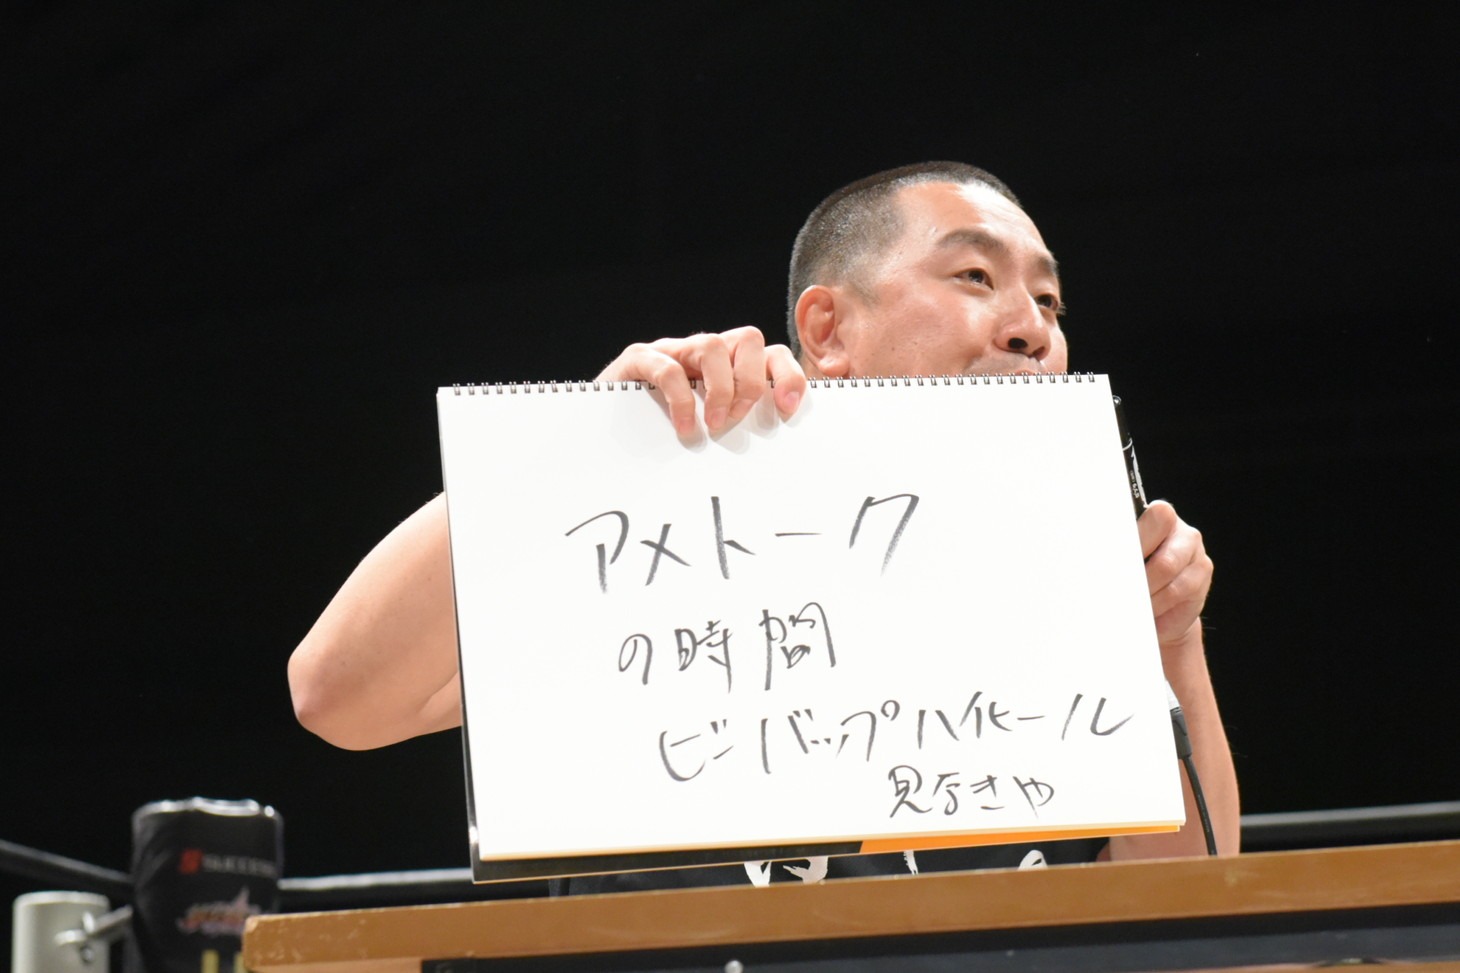 アメトーク
の時間
ビーバップハイヒール
見なきや